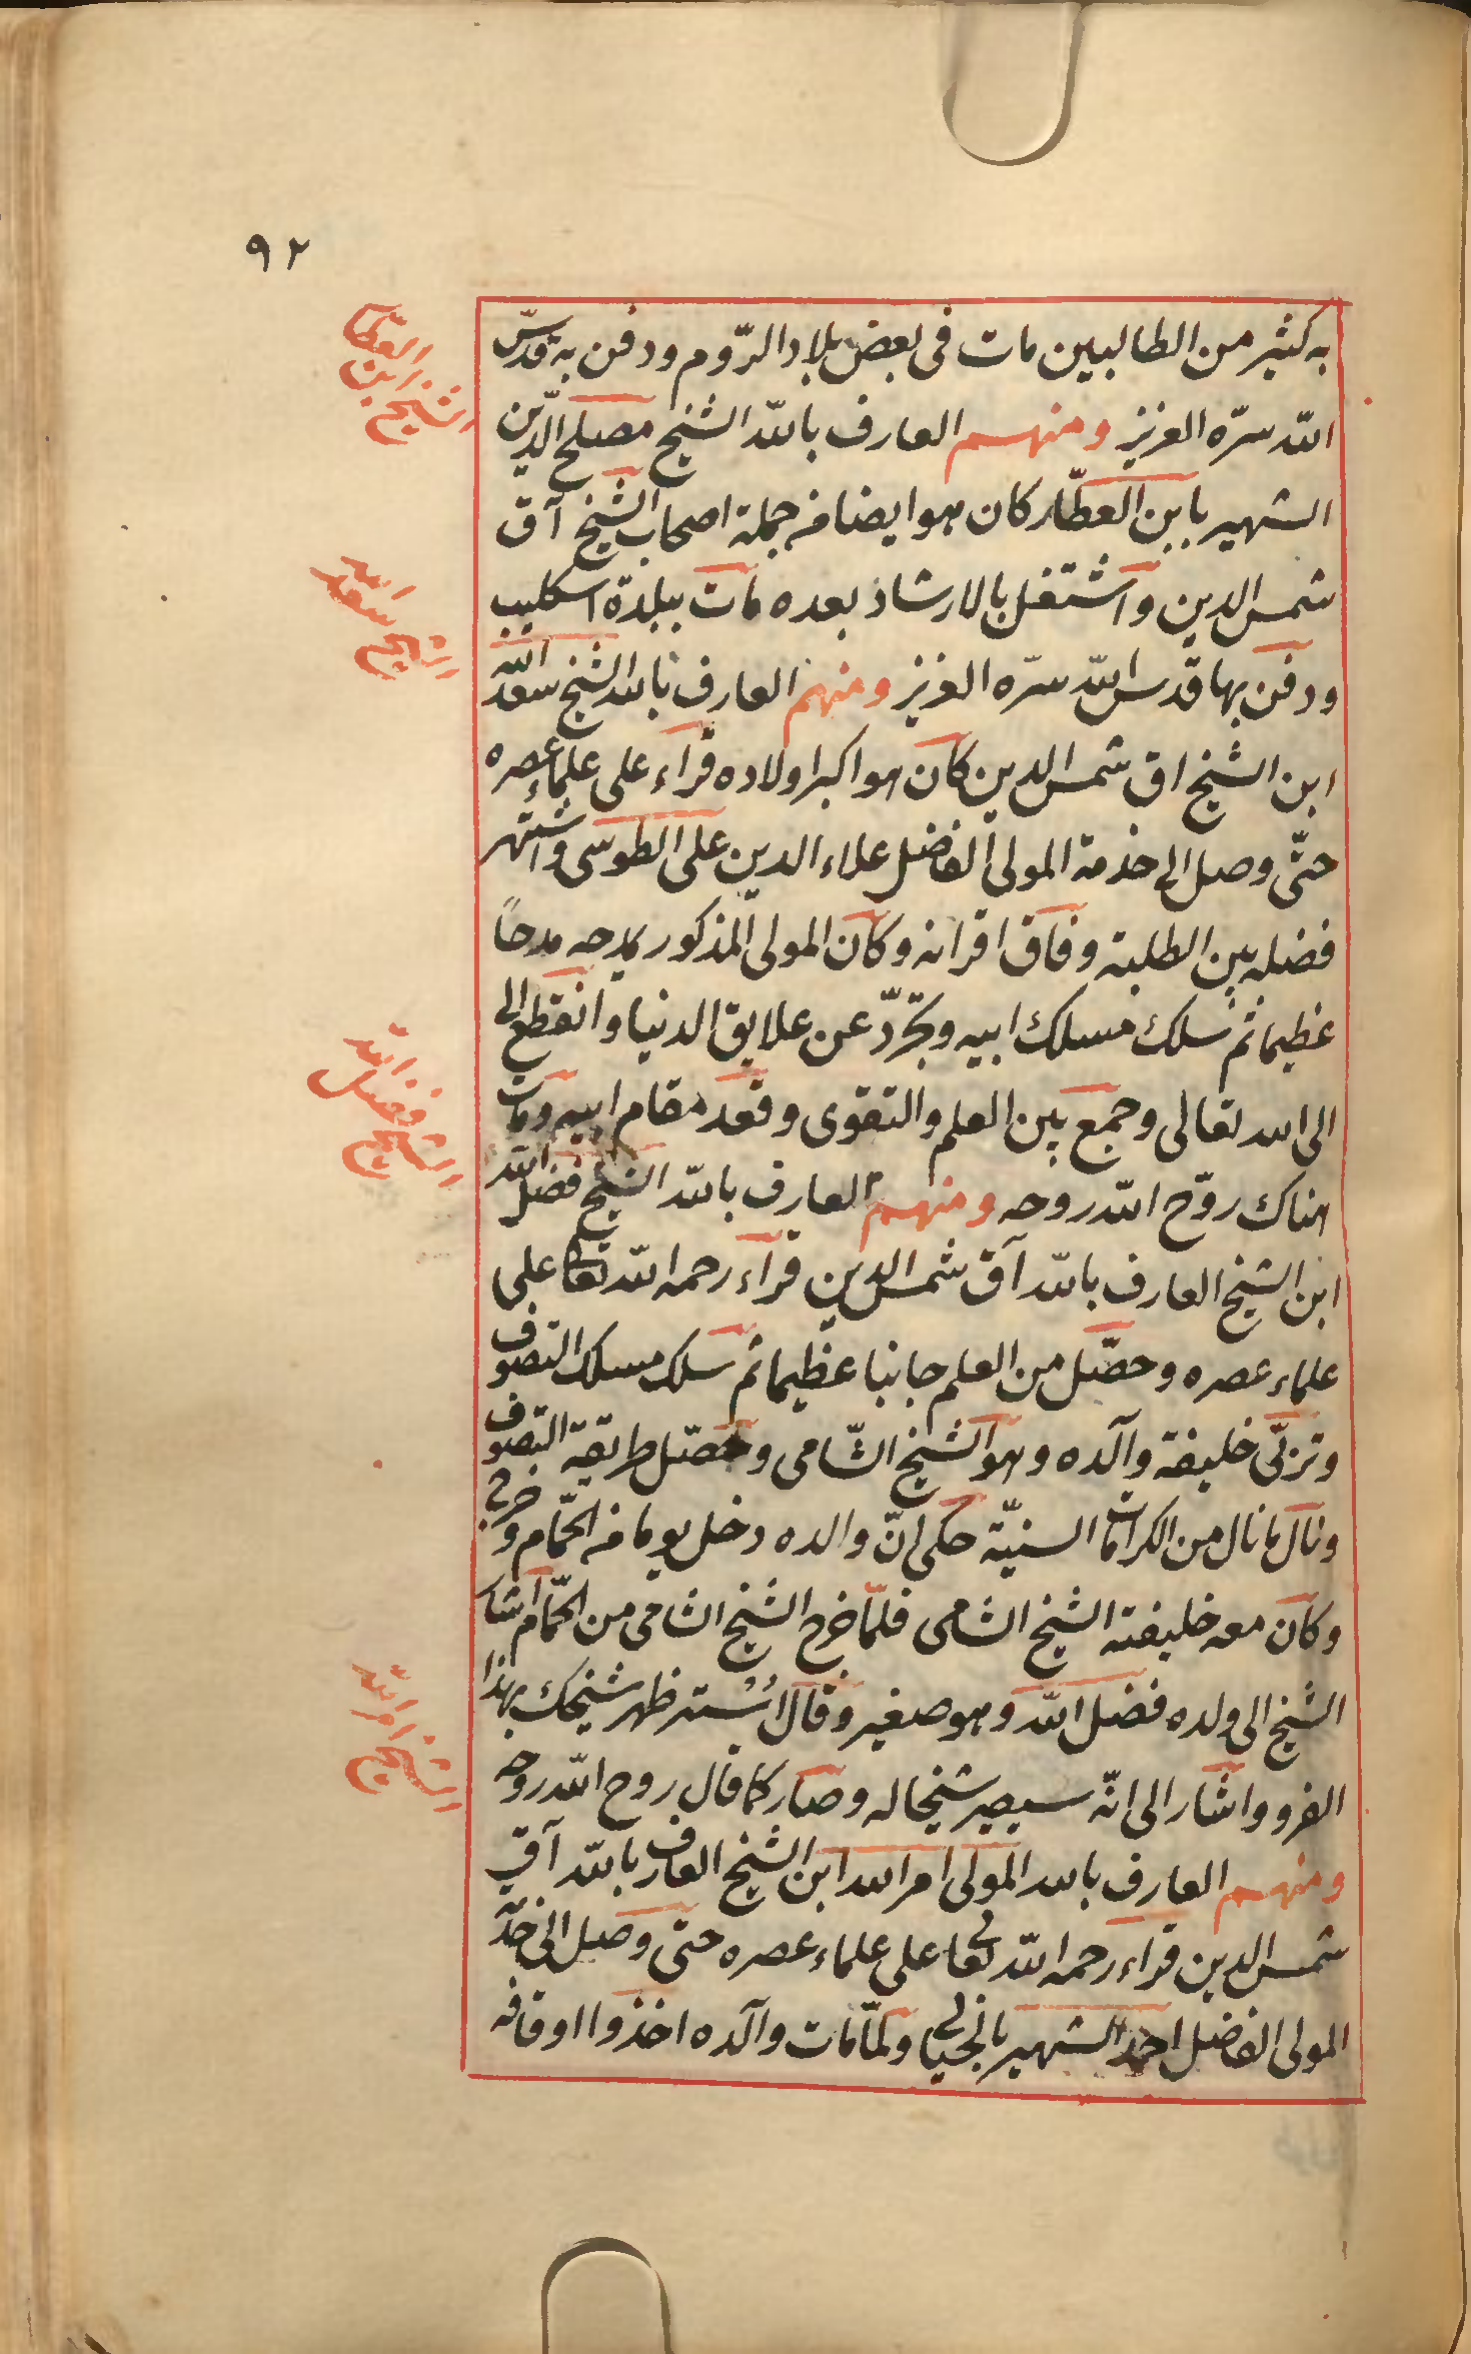 ٩٢
به كثير من الطالبين مات فى بعض بلاد الرّوم ودفن به قدسّ
الله سرّه العزيز ومنهم العارف بالله الشيخ مصلح الدّين
الشهير بابن العطّار كان هو ايضا من جملة اصحاب الشيخ آق
شمس الدين واشتغل بالارشاد بعده مات ببلدة اسكليب
ودفن بها قدس الله سرّه العزيز ومنهم العارف بالله الشيخ سعد الله
ابن الشيخ اق شمس الدين كان هو اكبر اولاده قراء على علماء عصره
حتّى وصل الى خدمة المولى الفاضل علاء الدين على الطوسى واشتهر
فضله بين الطلبة وفاق اقرانه وكان المولى المذكور يمدحه مدحاً
عظيما ثم سلك مسلك ابيه وتجرّد عن علايق الدنيا وانقطع الى
الى الله تعالى وجمع بين العلم والتقوى وقعد مقام ابيه ومات
هناك روّح الله روحه ومنهم العارف بالله الشيخ فضل الله
ابن الشيخ العارف بالله آق شمس الدين قراء رحمه الله تعا على
علماء عصره وحصّل من العلم جانبا عظيما ثم سلك مسلك التصوف
وتربّى خليفة والده وهو الشيخ الشّامى وحصّل طريقة التصوف
ونال ما نال من الكرامات السنيّة حكى انّ والده دخل يوما فى الحمّام وخرج
وكان معه خليفته الشيخ الشامى فلمّا خرج الشيخ الشامى من الحمّام اشار
الشيخ الى ولده فضل الله وهو صغير وقال اُسْتر ظهر شيخك بهذا
الفرو واشار الى انّه سيصير شيخا له وصار كما قال روح الله روحه
ومنهم العارف بالله المولى امر الله ابن الشيخ العارف بالله آق
شمس الدين قراء رحمه الله تعالى على علماء عصره حتى وصل الى خدمة
المولى الفاضل احمد الشهير بالخيالى ولمّا مات والده اخذوا اوقافه
الشيخ ابن العطار
الشيخ سعد الله
الشيخ فضل الله
الشيخ امر الله